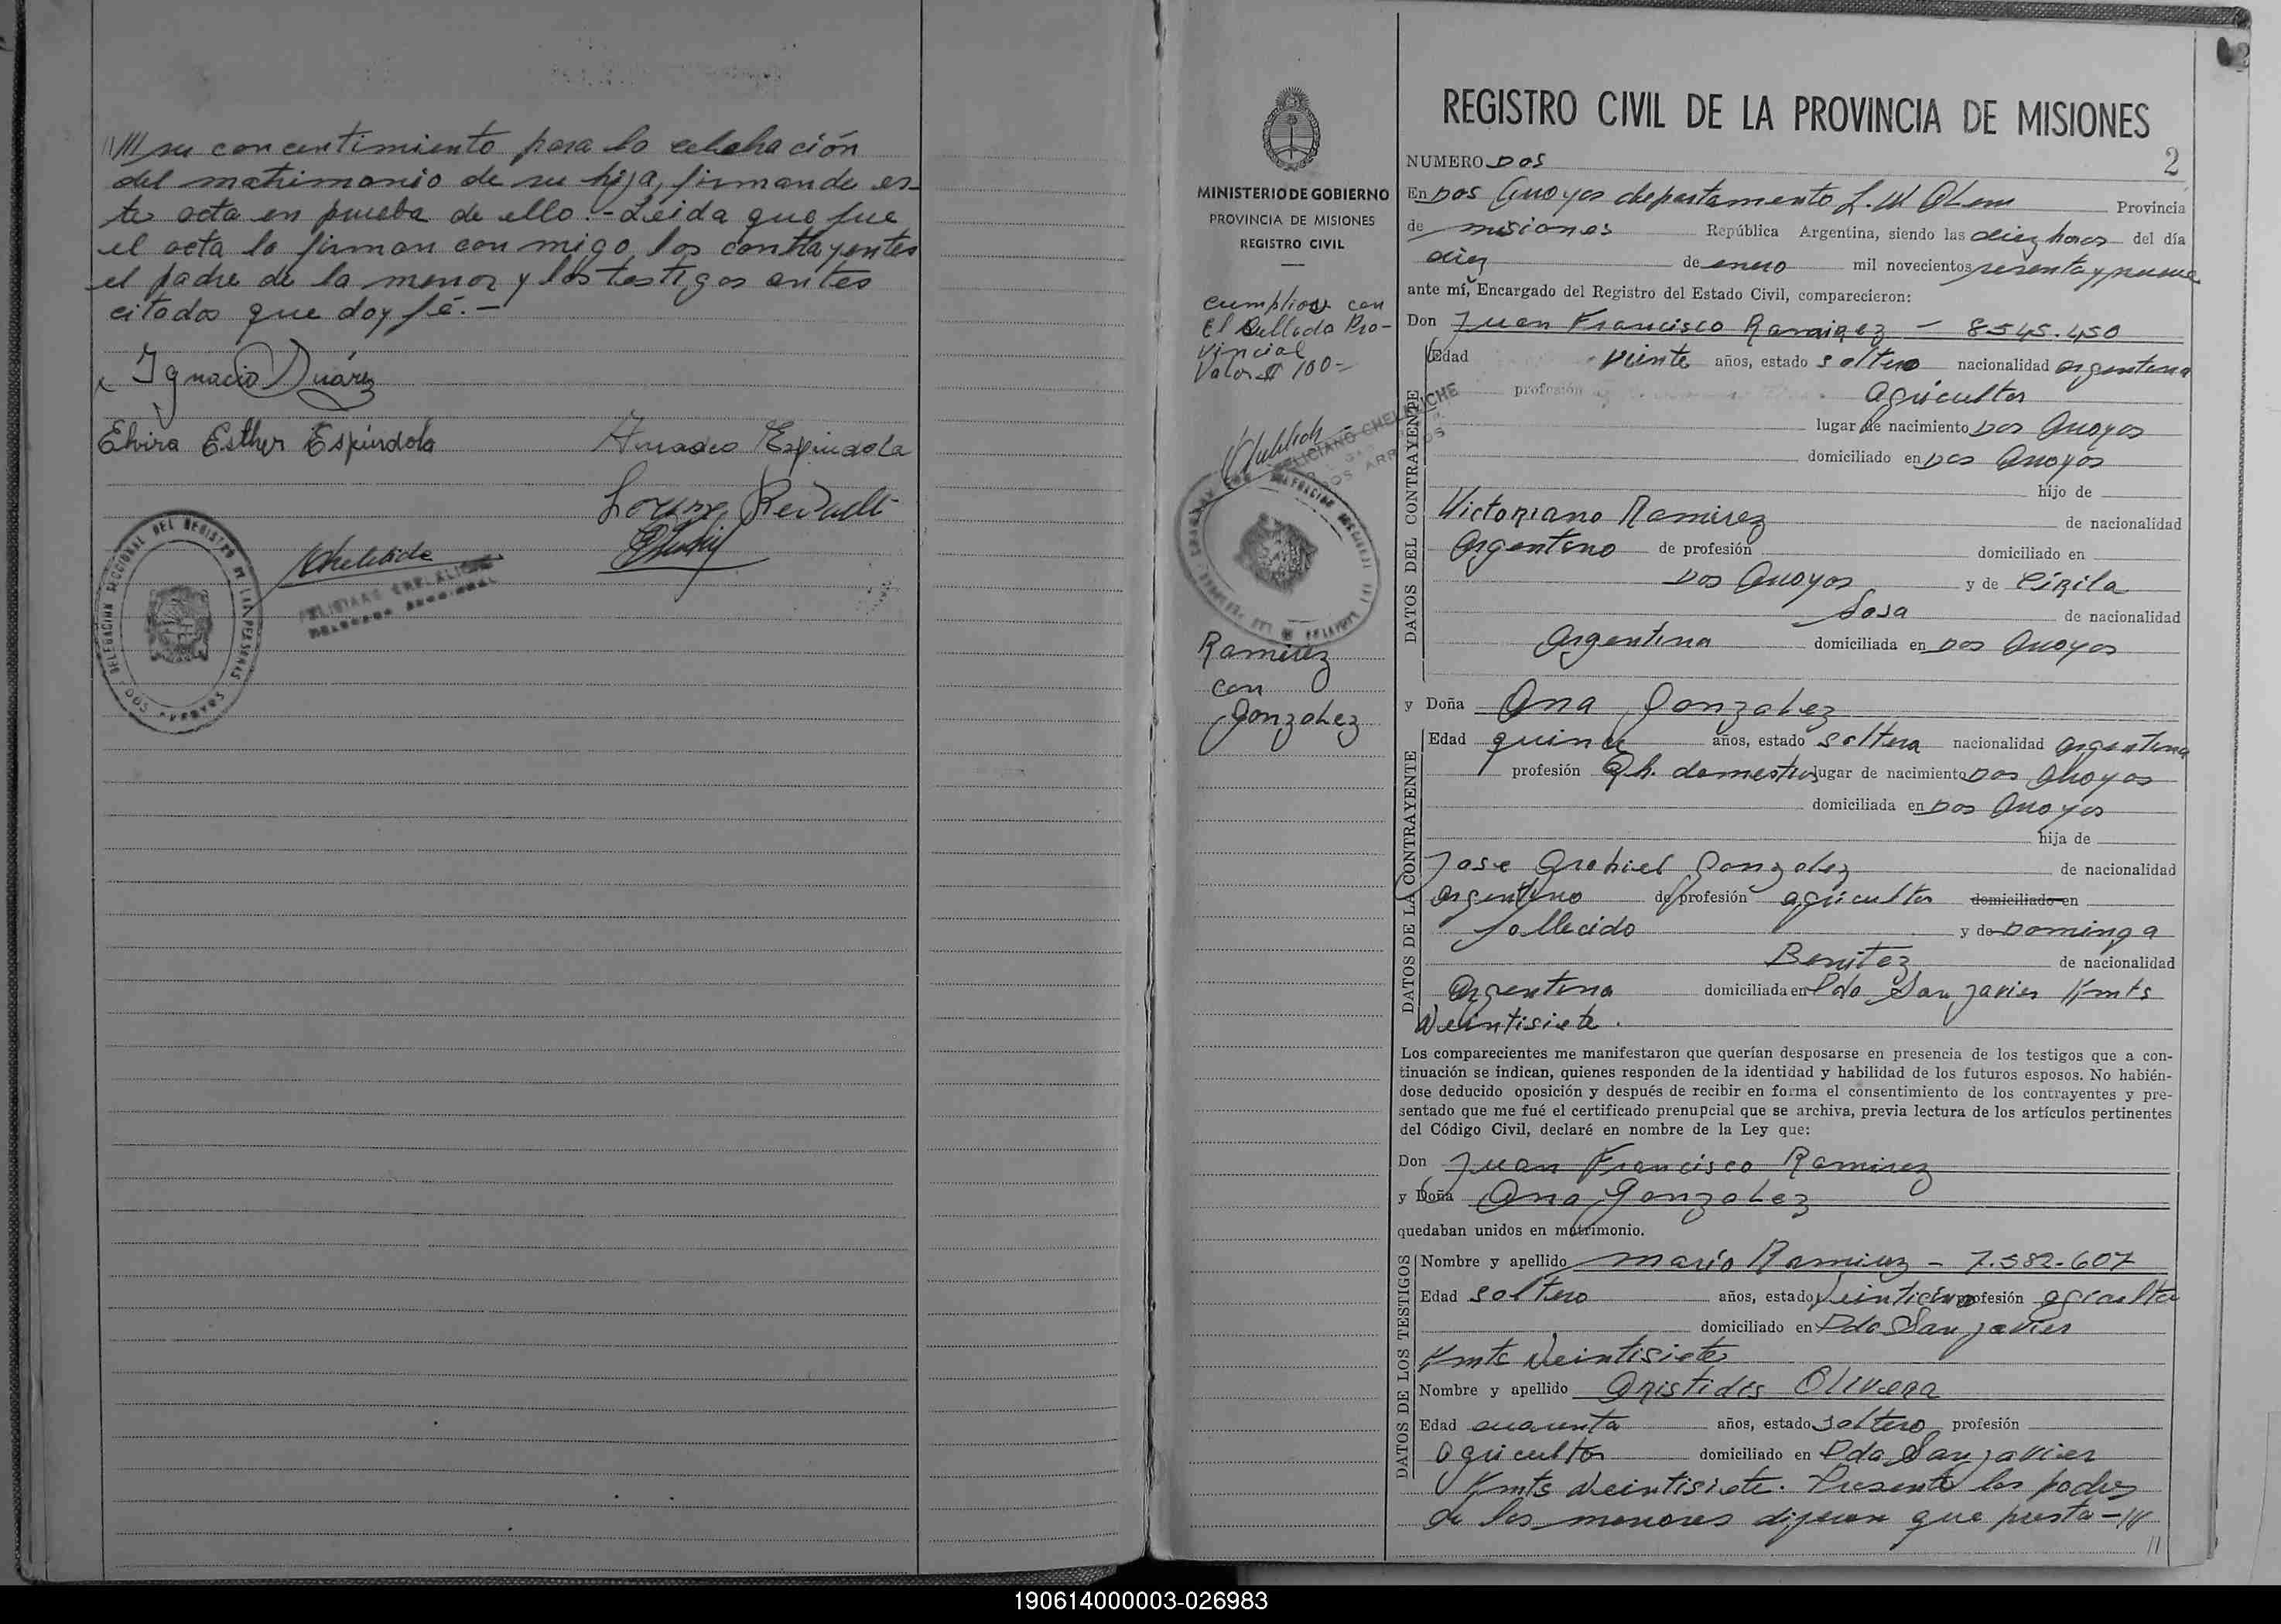 su concentimiento para la celebración
del matrimonio de su hija, firmando es-
te acta en prueba de ello.- Leida que fue
el acta la firman con migo los contrayentes
el padre de la menor y los testigos antes
citados que doy fé.-
Ignacio Duárez
Elvira Esther Espíndola
Amadeo Espindola
DELEGACION SECCIONAL DEL REGISTRO DE LAS PERSONAS
DOS ARROYOS
MINISTERIO DE GOBIERNO
PROVINCIA DE MISIONES
REGISTRO CIVIL
cumplios con
el Sellado Pro-
vincial
Valor $ 100-
FELICIANO CHELALICHE
Ramirez
con
Gonzalez
REGISTRO CIVIL DE LA PROVINCIA DE MISIONES
NUMERO DOS
2
En Dos Arroyos departamento L. N. Alem Provincia
de misiones República Argentina, siendo las diez horas del día
diez de enero mil novecientos sesenta y nueve
ante mí, Encargado del Registro del Estado Civil, comparecieron:
Don Juan Francisco Ramirez - 8.545.450
Edad veinte años, estado soltero nacionalidad argentina
profesión agricultor
lugar de nacimiento Dos Arroyos
domiciliado en Dos Arroyos
hijo de
Victoriano Ramirez de nacionalidad
Argentino de profesión domiciliado en
Dos Arroyos y de Cirila
Sosa de nacionalidad
Argentina domiciliada en Dos Arroyos
DATOS DEL CONTRAYENTE
y Doña Ana Gonzalez
Edad quince años, estado soltera nacionalidad argentina
profesión Qh. domestico lugar de nacimiento Dos Arroyos
domiciliada en Dos Arroyos
hija de
Jose Grabiel Gonzalez de nacionalidad
argentino de profesión agricultor domiciliado en
fallecido y de Dominga
Benitez de nacionalidad
Argentina domiciliada en Pda San Javier Kmts
Veintisiete.
DATOS DE LA CONTRAYENTE
Los comparecientes me manifestaron que querían desposarse en presencia de los testigos que a con-
tinuación se indican, quienes responden de la identidad y habilidad de los futuros esposos. No habién-
dose deducido oposición y después de recibir en forma el consentimiento de los contrayentes y pre-
sentado que me fué el certificado prenupcial que se archiva, previa lectura de los artículos pertinentes
del Código Civil, declaré en nombre de la Ley que:
Don Juan Francisco Ramirez
y Doña Ana Gonzalez
quedaban unidos en matrimonio.
Nombre y apellido mario Ramirez - 7.582.607
Edad soltero años, estado veinticinco profesión agriculto
domiciliado en Pda San Javier
Kmts Veintisiete
Nombre y apellido Aristides Olivera
Edad cuarenta años, estado soltero profesión
agricultor domiciliado en Pda San Javier
Kmts Veintisiete. Presente los padres
de los menores dijeron que presta-
DATOS DE LOS TESTIGOS
190614000003-026983